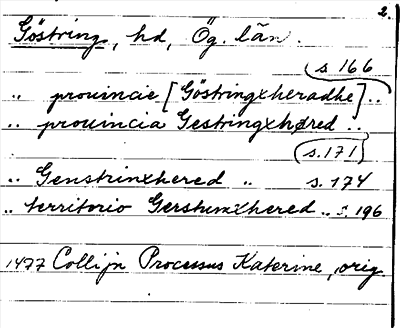 2.
Göstring, hd, Ög. län.
s. 166
.. prouincie [Göstringxheradhe] ..
.. prouincia Gestringxhøred ..
s. 171
.. Genstrinxhered .. s. 174
.. territorio Gerstumxhered .. s. 196
1477 Collijn Processus Katerine, orig.